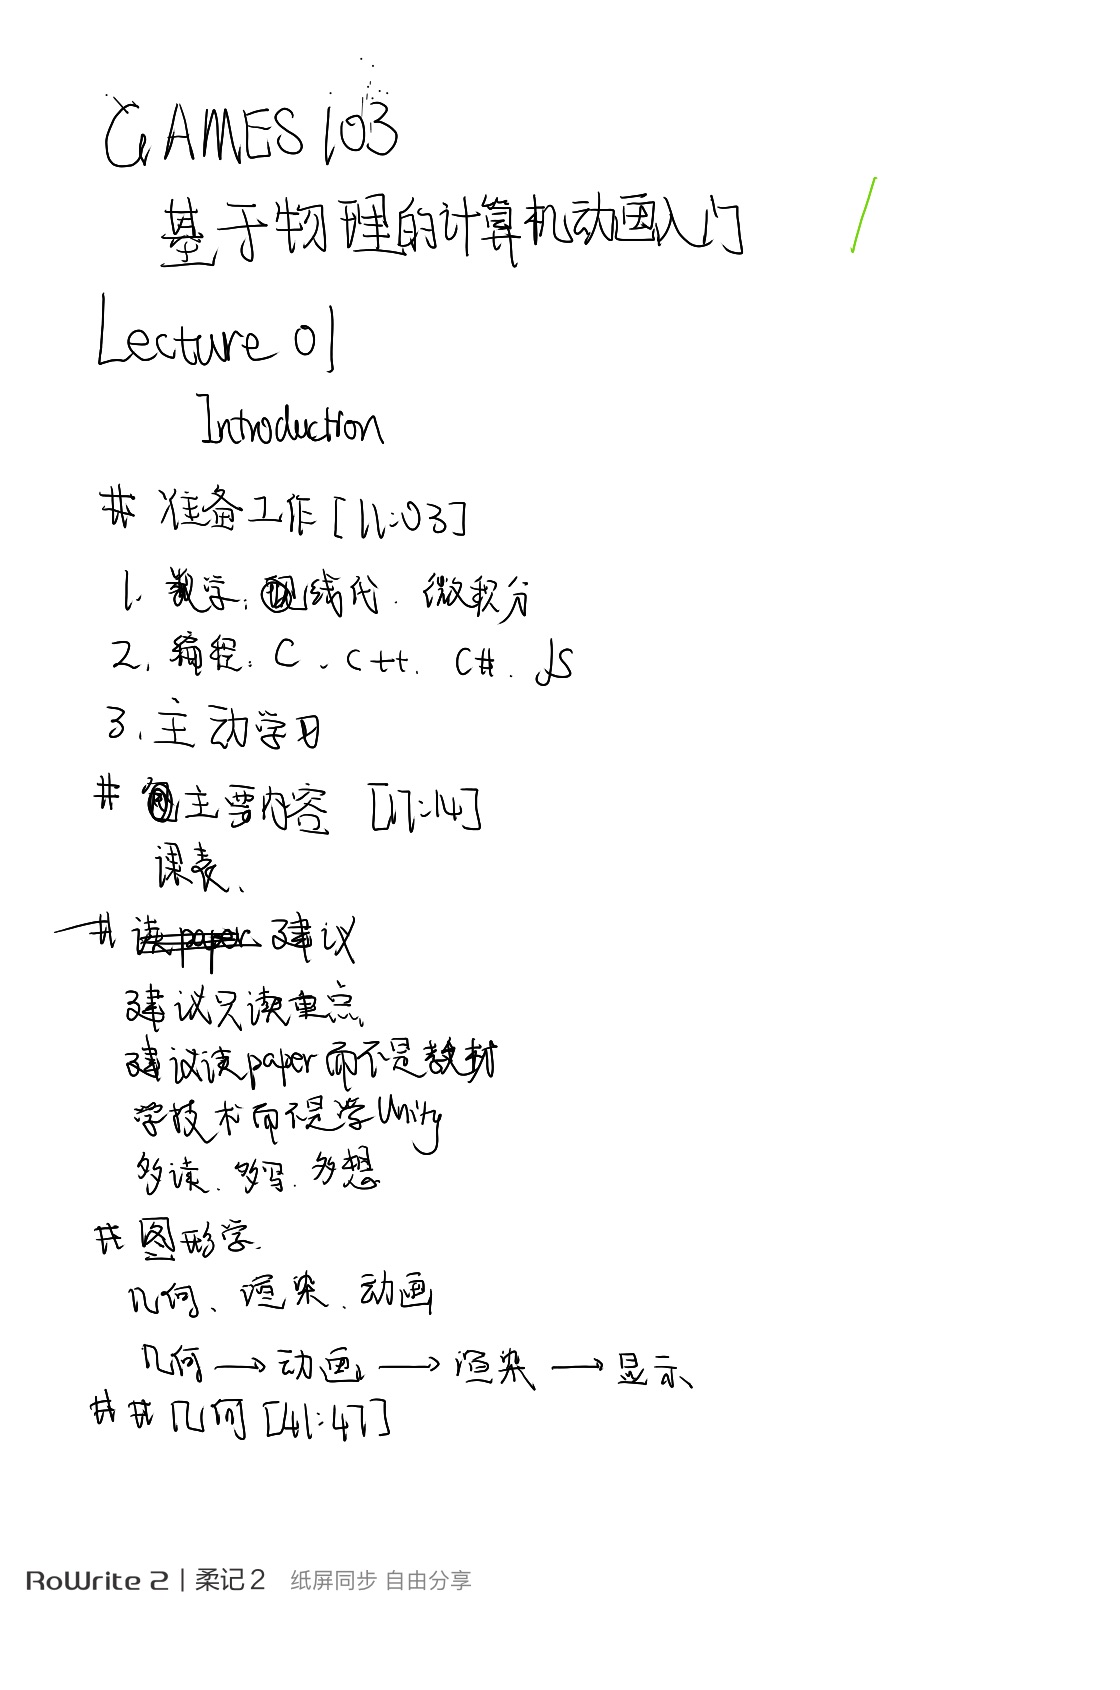 GAMES 103
基于物理的计算机动画入门
Lecture 01
Introduction
# 准备工作 [11:03]
1. 数学: 线代、微积分
2. 编程: C、C++、C#、JS
3. 主动学习
# 主要内容 [17:14]
课表、
# 读paper 建议
建议只读重点
建议读paper而不是教材
学技术而不是学Unity
多读、多写、多想
# 图形学
几何、渲染、动画
几何 → 动画 → 渲染 → 显示
## 几何 [41:47]
RoWrite 2 | 柔记 2 纸屏同步 自由分享